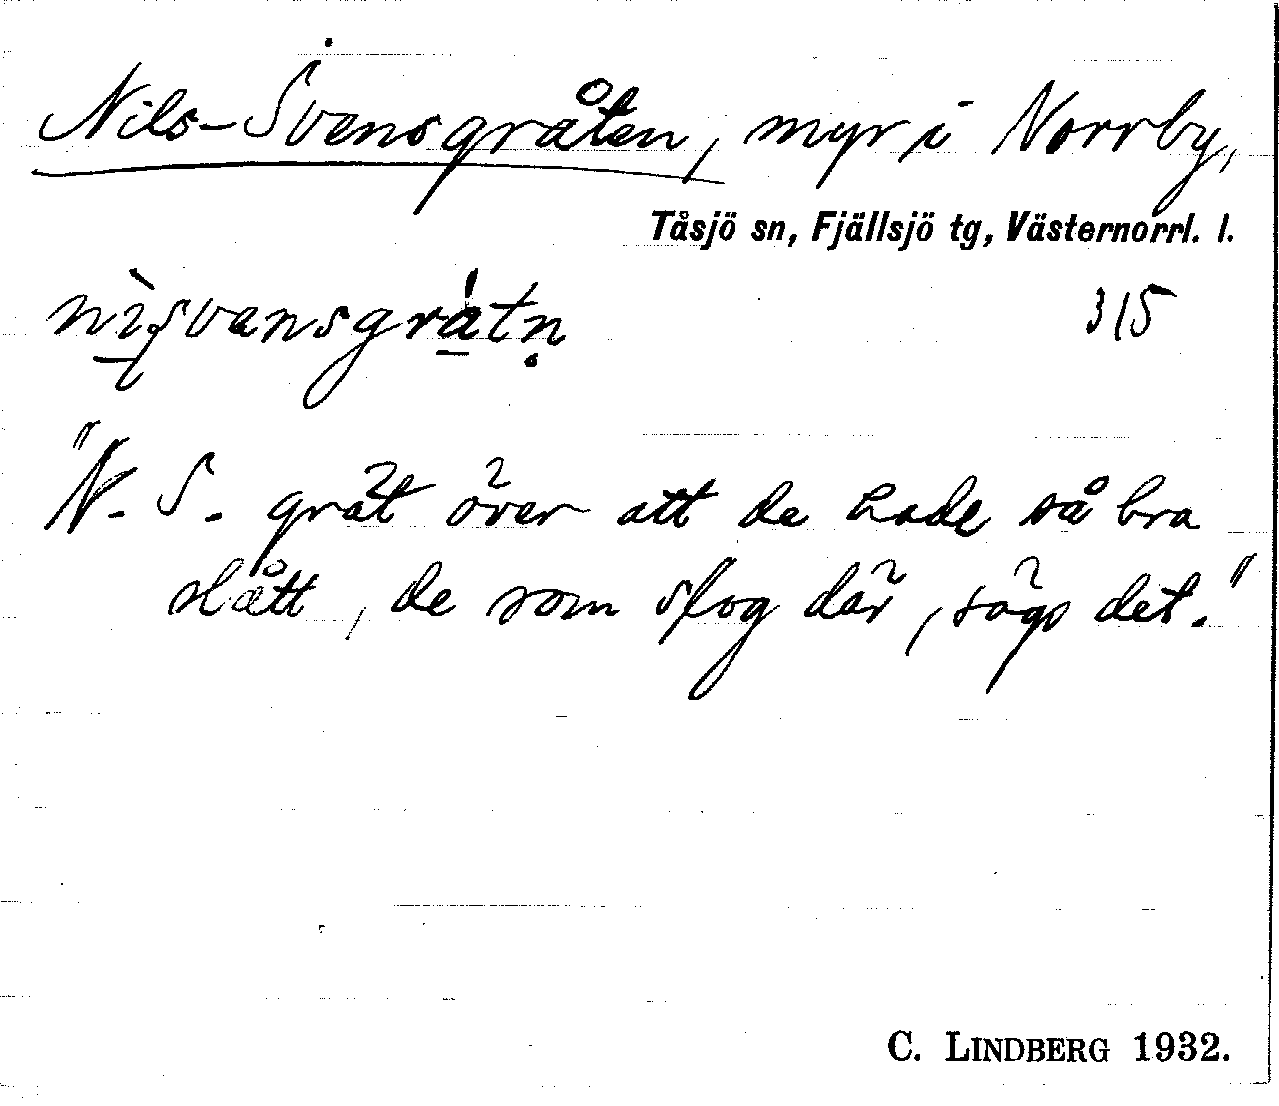 Nils-Svensgråten, myr i Norrby,
Tåsjö sn, Fjällsjö tg, Västernorrl. l.
315
"N. S. grät över att de hade så bra
slått, de som slog där, sägs det."
C. LINDBERG 1932.